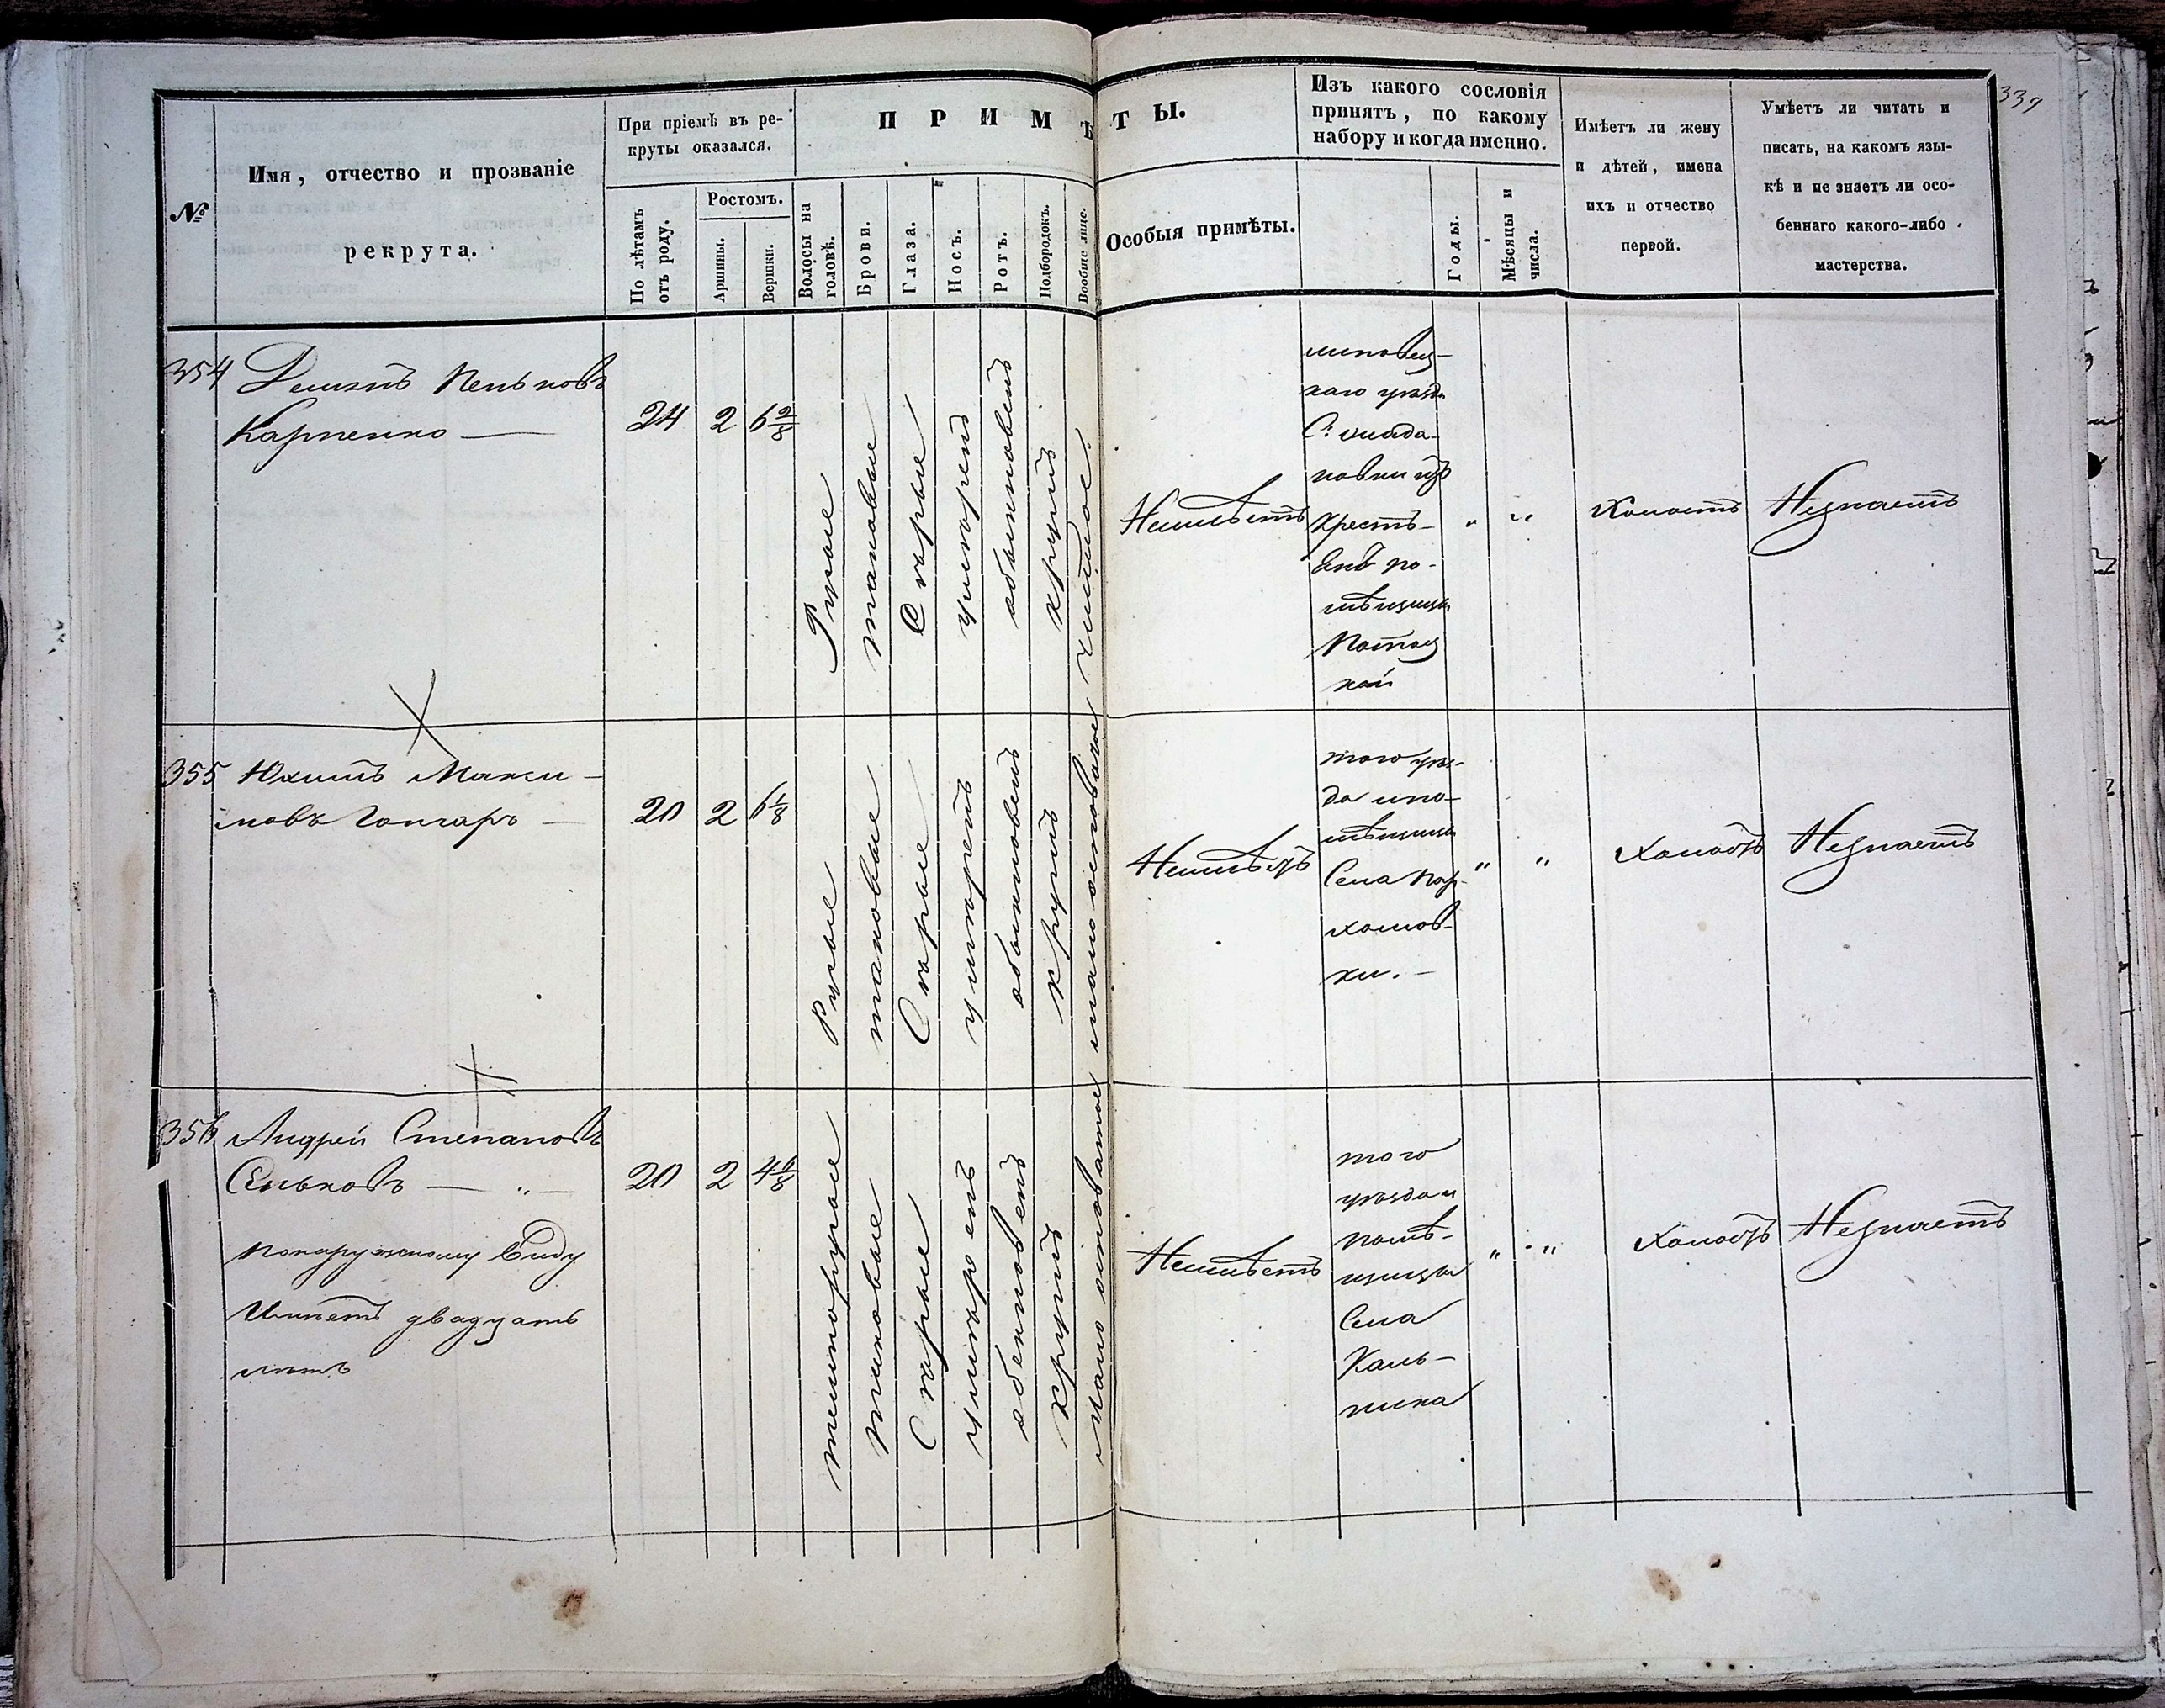 339
№
Имя, отчество и прозваніе
рекрута.
При пріемѣ въ ре-
круты оказался.
По лѣтамъ
отъ роду.
Ростомъ.
Аршины.
Вершки.
ПРИМѢТЫ.
Волосы на
головѣ.
Брови.
Глаза.
Носъ.
Ротъ.
Подбородокъ.
Вообще лице.
Особыя примѣты.
Изъ какого сословія
принятъ, по какому
набору и когда именно.
Годы.
Мѣсяцы и
числа.
Имѣетъ ли жену
и дѣтей, имена
ихъ и отчество
первой.
Умѣетъ ли читать и
писать, на какомъ язы-
кѣ и не знаетъ ли осо-
беннаго какого-либо
мастерства.
354
Карпенко —
24
2
6 2/8
Русые
таковые
Сѣрые
умѣренъ
обыкновенъ
круглъ
чистое.
Неимѣетъ
каго уѣзда
новки изъ
Кресть-
янъ по-
мѣщицы
Потоц
кой
"
"
Холостъ
Незнаетъ
355 Юхимъ Макси-
мовъ Гончаръ —
20
2
6 1/8
Русые
таковые
Сѣрые
умѣренъ
обыкновенъ
круглъ
мало осповатое
Неимѣетъ
того уѣз-
да и по-
мѣщицы
Села Пар-
хомов-
ки. —
"
"
Холостъ
Незнаетъ
356 Андрей Степановъ
Сеньковъ — " —
понаружному виду
Имѣетъ двадцать
лѣтъ
20
2
темнорусые
таковые
Сѣрые
умѣренъ
обкновенъ
круглъ
мало осповатые
Неимѣетъ
того
уѣзда и
помѣ-
щицы
Села
Каль-
ника
"
"
Холостъ
Незнаетъ